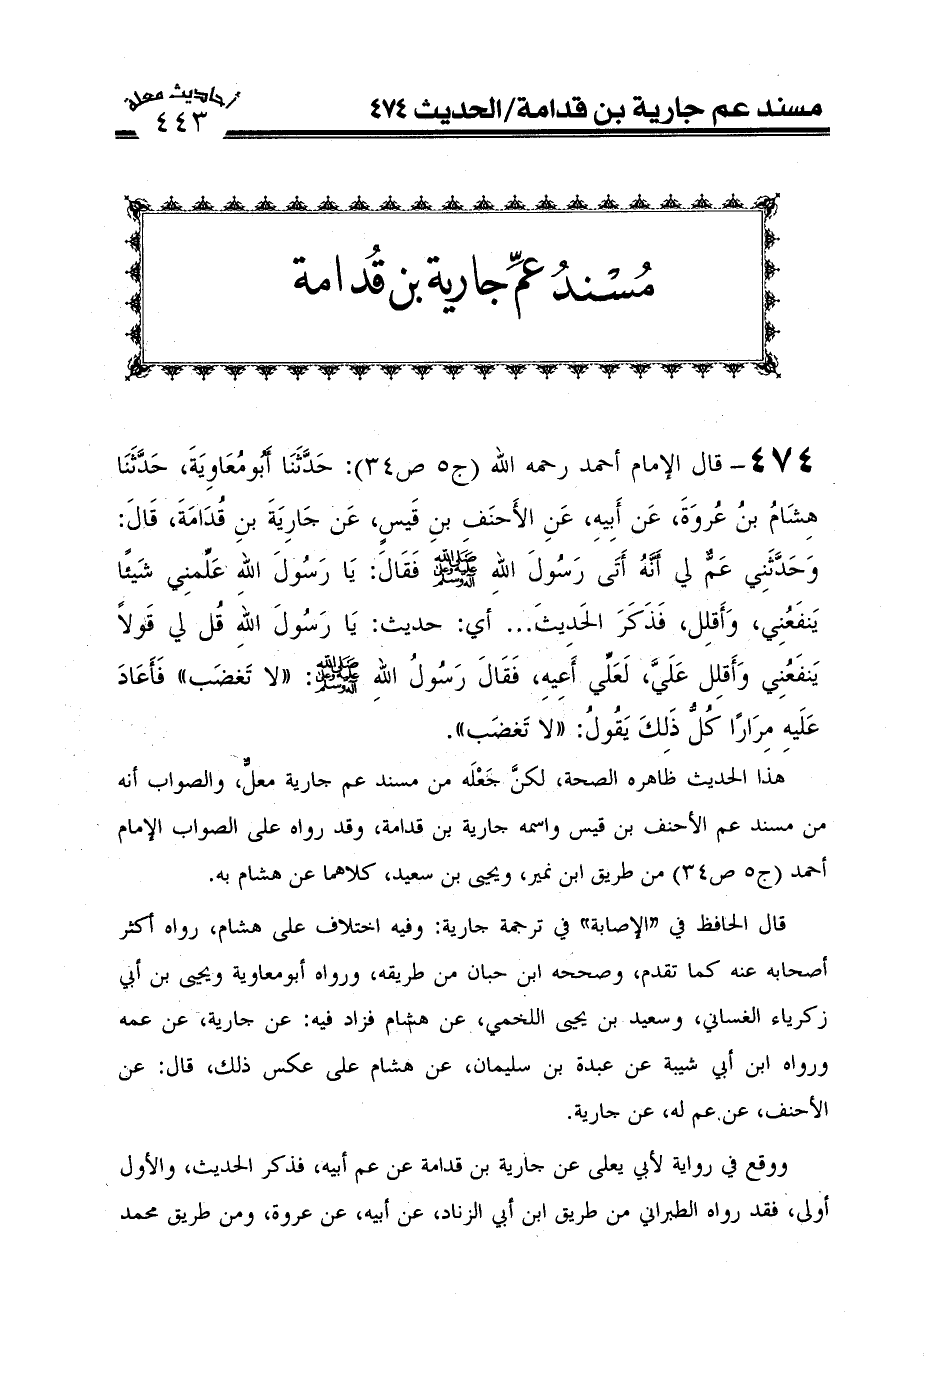 مسند عم جارية بن قدامة/الحديث ٤٧٤
أحاديث معلة
٤٤٣
مُسْنَدُ عَمِّ جارية بن قُدامة
٤٧٤ـ قال الإمام أحمد رحمه الله (ج٥ ص٣٤): حَدَّثَنَا أَبُومُعَاوِيَةَ، حَدَّثَنَا
هِشَامُ بنُ عُروَةَ، عَن أَبِيهِ، عَنِ الأَحنَفِ بنِ قَيسٍ، عَن جَارِيَةَ بنِ قُدَامَةَ، قَالَ:
وَحَدَّثَنِي عَمٌّ لي أَنَّهُ أَتَى رَسُولَ اللهِ ﷺ فَقَالَ: يَا رَسُولَ اللهِ عَلِّمنِي شَيئًا
يَنفَعُنِي، وَأَقلِل، فَذَكَرَ الحَدِيثَ... أي: حديث: يَا رَسُولَ اللهِ قُل لي قَولاً
يَنفَعُنِي وَأَقلِل عَلَيَّ، لَعَلِّي أَعِيهِ، فَقَالَ رَسُولُ اللهِ ﷺ: «لا تَغضَب» فَأَعَادَ
عَلَيهِ مِرَارًا كُلُّ ذَلِكَ يَقُولُ: «لا تَغضَب».
هذا الحديث ظاهره الصحة، لكنَّ جَعْلَه من مسند عم جارية معلٌّ، والصواب أنه
من مسند عم الأحنف بن قيس واسمه جارية بن قدامة، وقد رواه على الصواب الإمام
أحمد (ج٥ ص٣٤) من طريق ابن نمير، ويحيى بن سعيد، كلاهما عن هشام به.
قال الحافظ في «الإصابة» في ترجمة جارية: وفيه اختلاف على هشام، رواه أكثر
أصحابه عنه كما تقدم، وصححه ابن حبان من طريقه، ورواه أبومعاوية ويحيى بن أبي
زكرياء الغساني، وسعيد بن يحيى اللخمي، عن هشام فزاد فيه: عن جارية، عن عمه
ورواه ابن أبي شيبة عن عبدة بن سليمان، عن هشام على عكس ذلك، قال: عن
الأحنف، عن عم له، عن جارية.
ووقع في رواية لأبي يعلى عن جارية بن قدامة عن عم أبيه، فذكر الحديث، والأول
أولى، فقد رواه الطبراني من طريق ابن أبي الزناد، عن أبيه، عن عروة، ومن طريق محمد